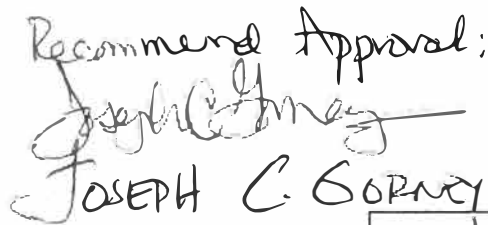 Recommend Approval:
Joseph C Gorney
JOSEPH C. GORNEY